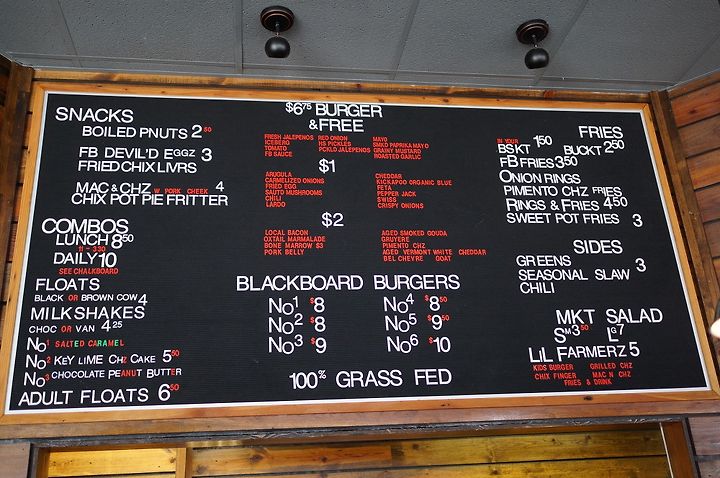 SNACKS
BOILED PNUTS 2 50
FB DEVIL'D EGGZ 3
FRIED CHIX LIVRS
MAC & CHZ W PORK CHEEK 4
CHIX POT PIE FRITTER
COMBOS
LUNCH 8 50
11 - 3:30
DAILY 10
SEE CHALKBOARD
FLOATS
BLACK OR BROWN COW 4
MILKSHAKES
CHOC OR VAN 4 25
NO 1 SALTED CARAMEL
NO 2 KEY LIME CHZ CAKE 5 50
NO 3 CHOCOLATE PEANUT BUTTER
ADULT FLOATS 6 50
$6 75 BURGER
& FREE
FRESH JALEPENOS RED ONION MAYO
ICEBERG HS PICKLES SMKD PAPRIKA MAYO
TOMATO PCKLD JALEPENOS GRAINY MUSTARD
FB SAUCE ROASTED GARLIC
$1
ARUGULA CHEDDAR
CARMELIZED ONIONS KICKAPOO ORGANIC BLUE
FRIED EGG FETA
SAUTD MUSHROOMS PEPPER JACK
CHILI SWISS
LARDO CRISPY ONIONS
$2
LOCAL BACON AGED SMOKED GOUDA
OXTAIL MARMALADE GRUYERE
BONE MARROW $3 PIMENTO CHZ
PORK BELLY AGED VERMONT WHITE CHEDDAR
BEL CHEVRE GOAT
BLACKBOARD BURGERS
NO 1 $8 NO 4 $8 50
NO 2 $8 NO 5 $9 50
NO 3 $9 NO 6 $10
100% GRASS FED
FRIES
IN YOUR
BSKT 1 50 BUCKT 2 50
FB FRIES 3 50
ONION RINGS
PIMENTO CHZ FRIES
RINGS & FRIES 4 50
SWEET POT FRIES 3
SIDES
GREENS
SEASONAL SLAW 3
CHILI
MKT SALAD
SM 3 50 LG 7
LIL FARMERZ 5
KIDS BURGER GRILLED CHZ
CHIX FINGER MAC N CHZ
FRIES & DRINK